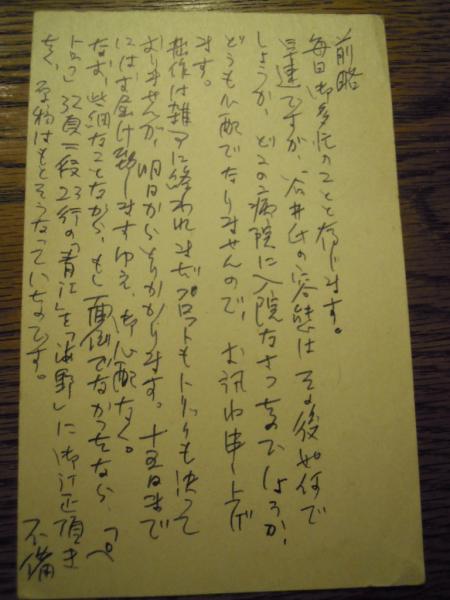 前略
毎日御多忙のことと存じます。
早速ですが、谷井氏の容態はその後如何で
しょうか、どこの病院に入院なさったのでしょうか、
どうも心配でなりませんので、お訊ね申し上げ
ます。
拙作は雑事に終われまだプロットもトリックも決って
おりませんが、明日からとりかかります。十五日まで
にはお届け致しますゆえ、御心配なく。
なお、些細なことながら、もし面倒でなかったなら、「ペ
トロフ」32頁二段23行の「青江」を「海野」に御訂正頂き
たく、原稿はもとそうなっていたのです。
不備